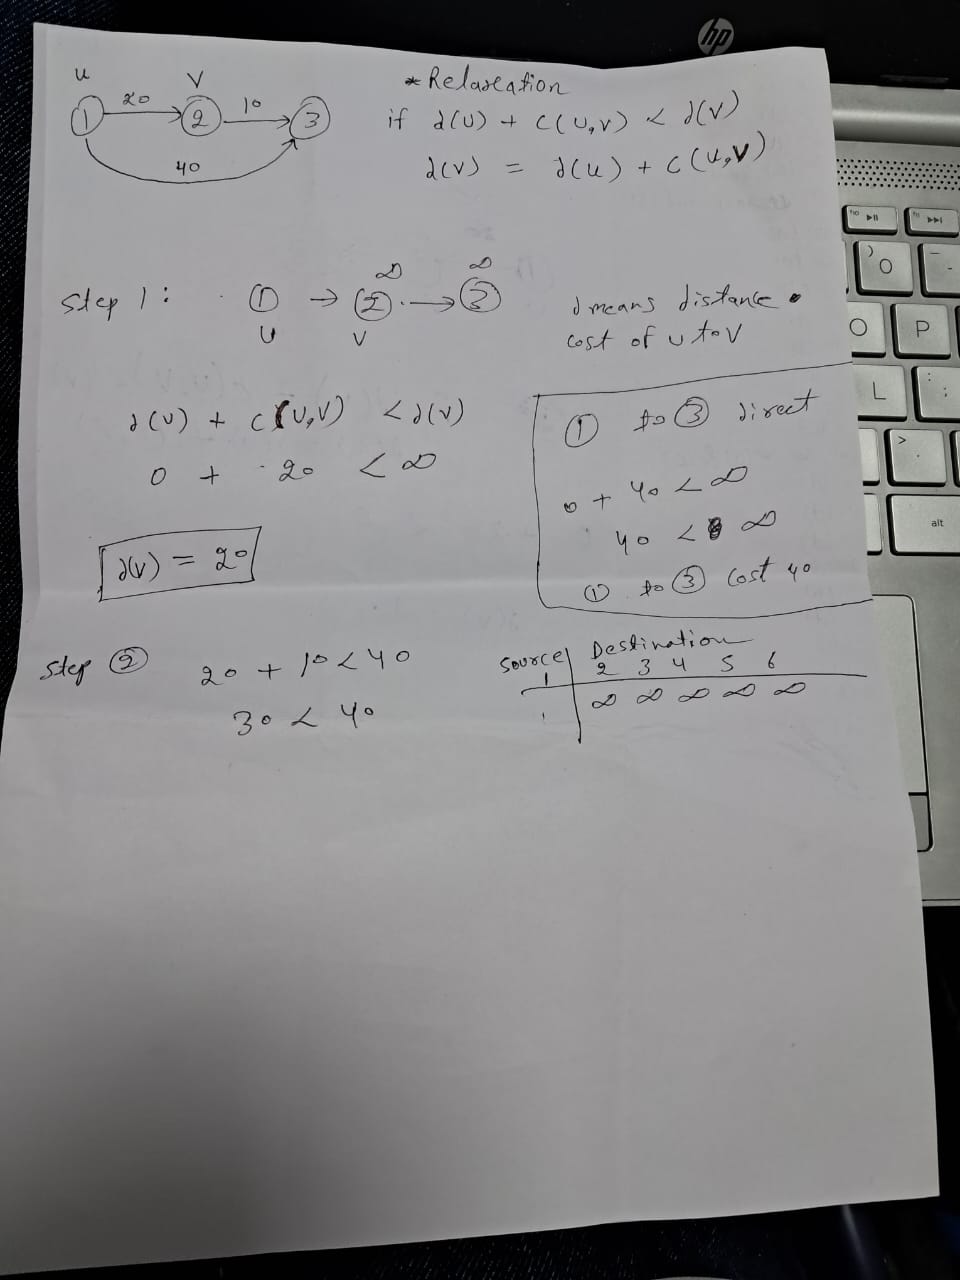 hp
u
v
20
10
1 2 3
40
* Relaxation
if d(u) + c(u,v) < d(v)
d(v) = d(u) + c(u,v)
Step 1:
∞ ∞
1 → 2 → 3
u v
d means distance
cost of u to v
d(u) + c(u,v) < d(v)
0 + 20 < ∞
d(v) = 20
1 to 3 direct
0 + 40 < ∞
40 < ∞
1 to 3 cost 40
Step 2
20 + 10 < 40
30 < 40
Source Destination
1 2 3 4 5 6
∞ ∞ ∞ ∞ ∞
O
O P
L
alt